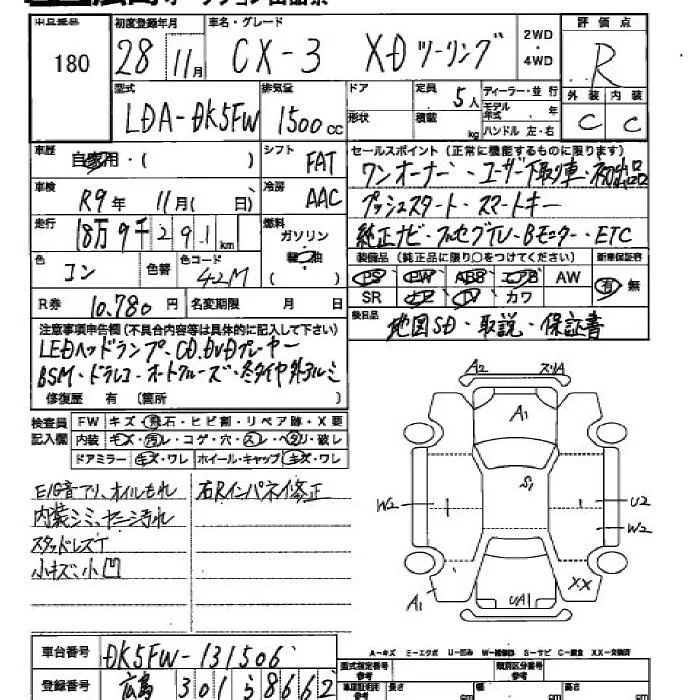 出品番号 初度登録年月 車名・グレード 2WD・4WD 評価点
180 28 11月 CX-3 XD ツーリング R
型式 排気量 ドア 定員 5人 ディーラー・並行 外装 内装
LDA-DK5FW 1500cc 形状 積載 kg モデル年式 年 ハンドル 左・右 C C
車歴 自家用・( ) シフト FAT セールスポイント (正常に機能するものに限ります)
ワンオーナー・ユーザー下取車・初出品
車検 R9年 11月( 日) 冷房 AAC プッシュスタート・スマートキー
走行 18万9千291km 燃料 ガソリン 軽油 ( ) 純正ナビ・フルセグTV・Bモニター・ETC
色 コン 色替 色コード 42M 装備品 (純正品に限り○をつけてください) 新車保証書
PS PW ABS エアB AW 有・無
SR カワ
R券 10,780円 名変期限 月 日 後日品 地図SD・取説・保証書
注意事項申告欄 (不具合内容等は具体的に記入して下さい)
LEDヘッドランプ、CD、DVDプレーヤー
BSM・ドラレコ・オートクルーズ・冬タイヤ外アルミ
修復歴 有 (箇所 )
検査員記入欄 FW キズ・飛石・ヒビ割・リペア跡・X要
内装 キズ・汚レ・コゲ・穴・スレ・ヘタリ・破レ
ドアミラー キズ・ワレ ホイール・キャップ キズ・ワレ
E/G音アリ、オイルもれ 右Rインパネイ修正
内装シミ、ヤニ汚れ
スタッドレスT
小キズ、小凹
A2 スリA
A1
S1
W2 U2
W2
XX
A1 UA1
A-キズ E-エクボ U-凹み W-補修跡 S-サビ C-腐食 XX-交換済
車台番号 DK5FW-131506
型式指定番号 類別区分番号
参考 参考
登録番号 広島 301 さ 8662
長さ cm 幅 cm 高さ cm